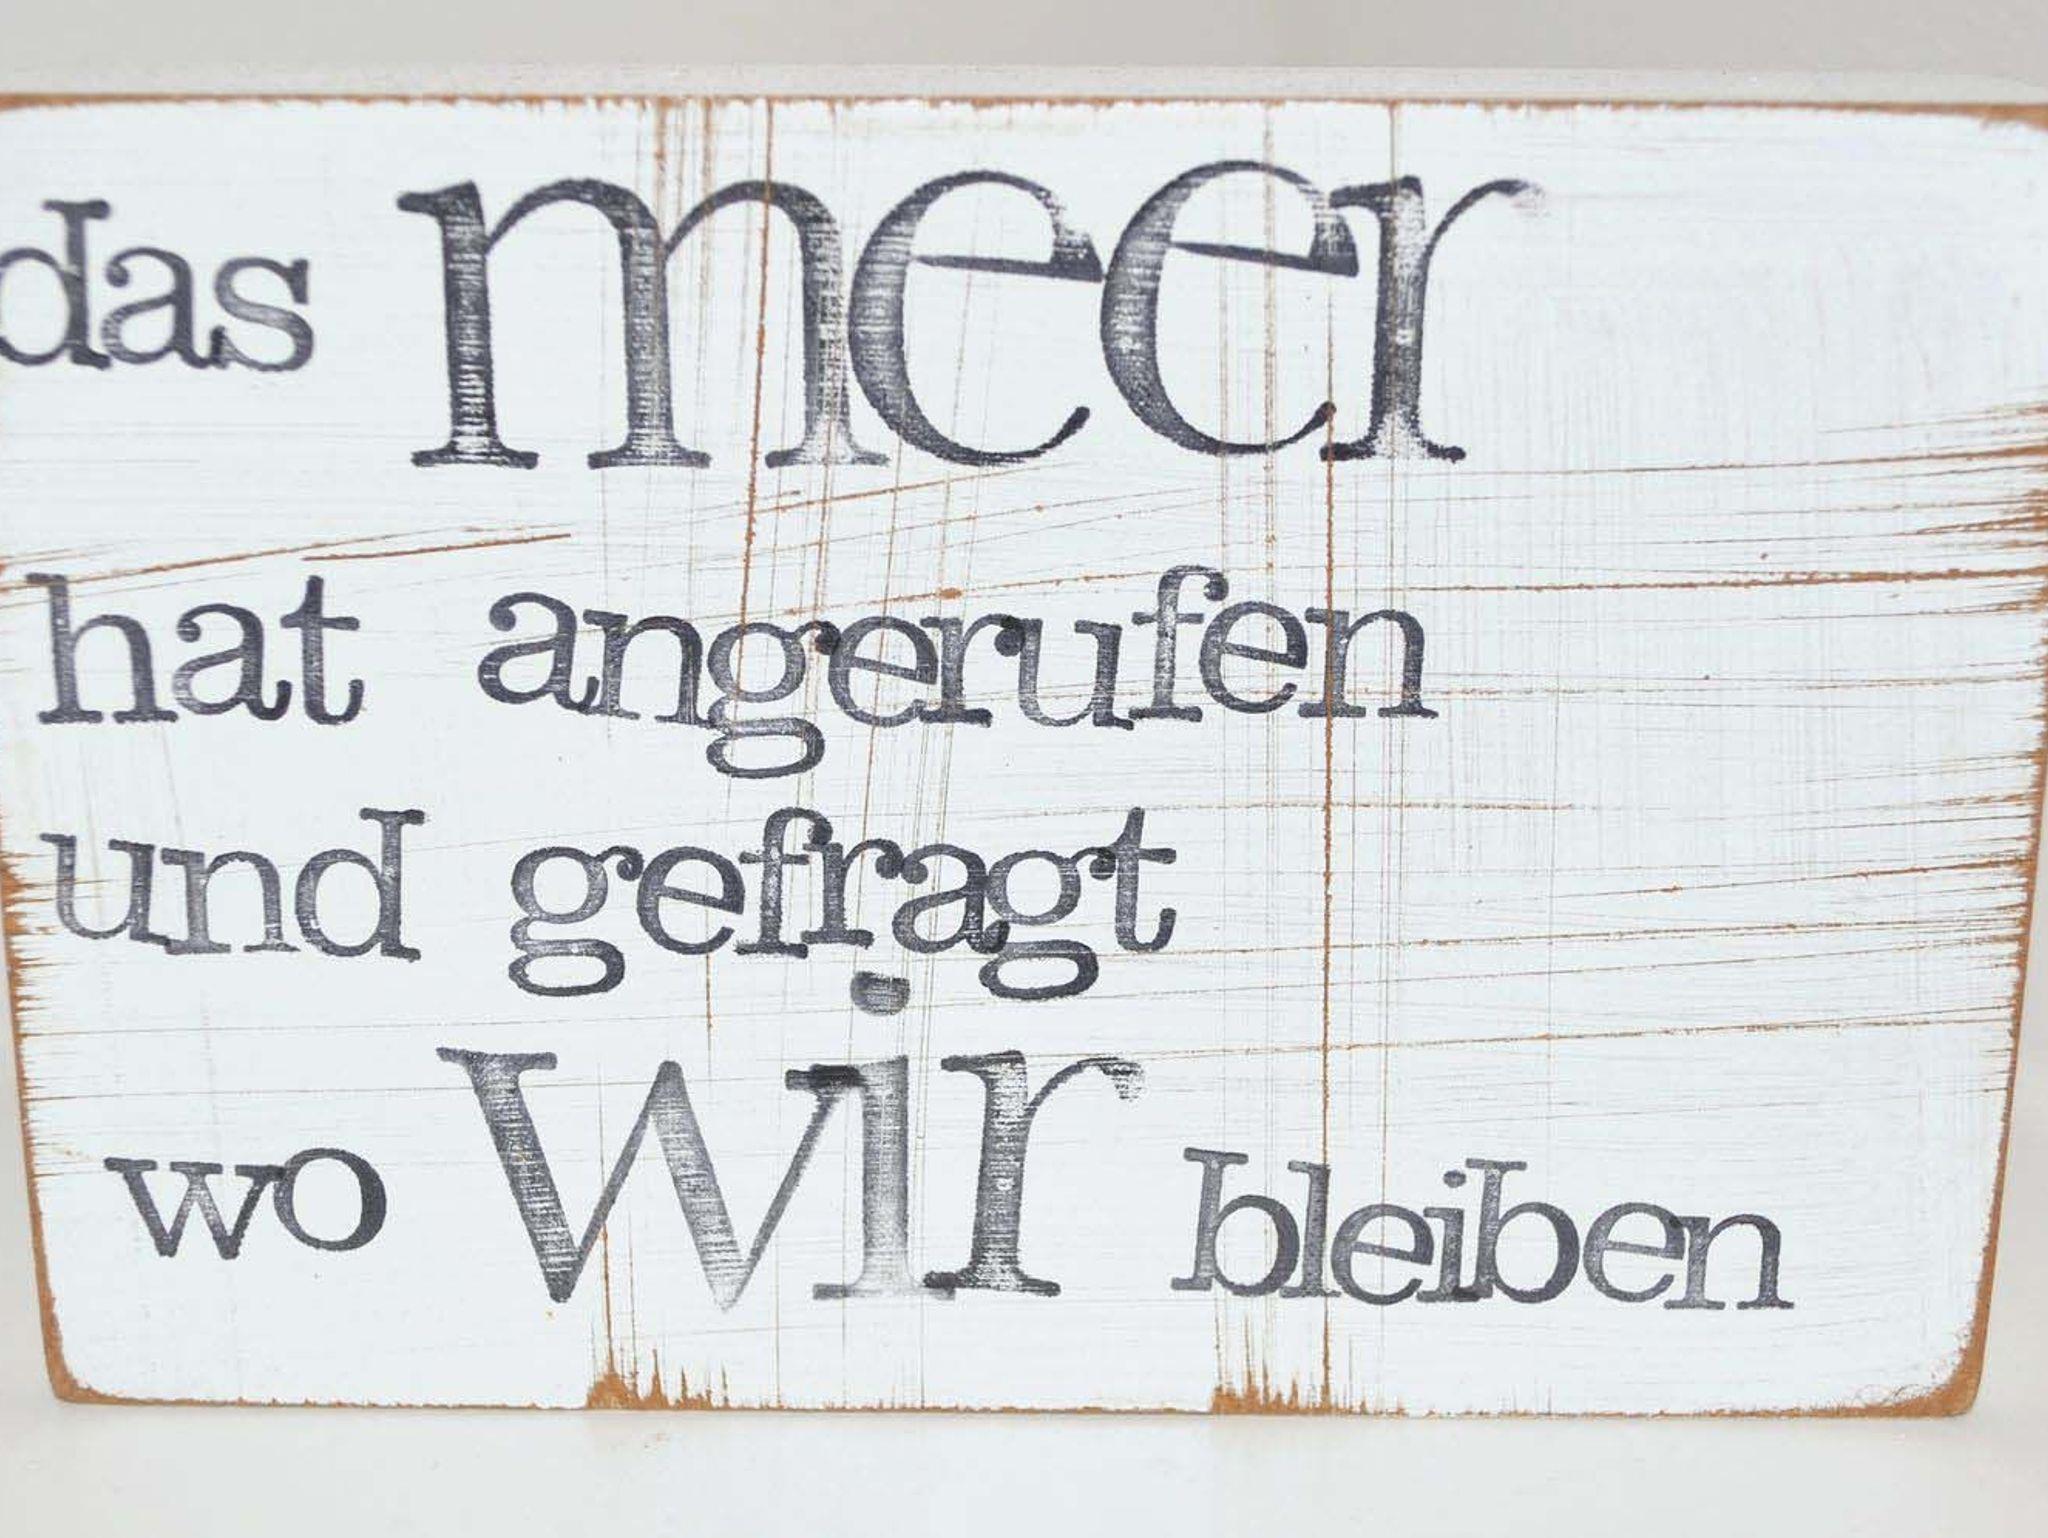 das meer
hat angerufen
und gefragt
wo wir bleiben